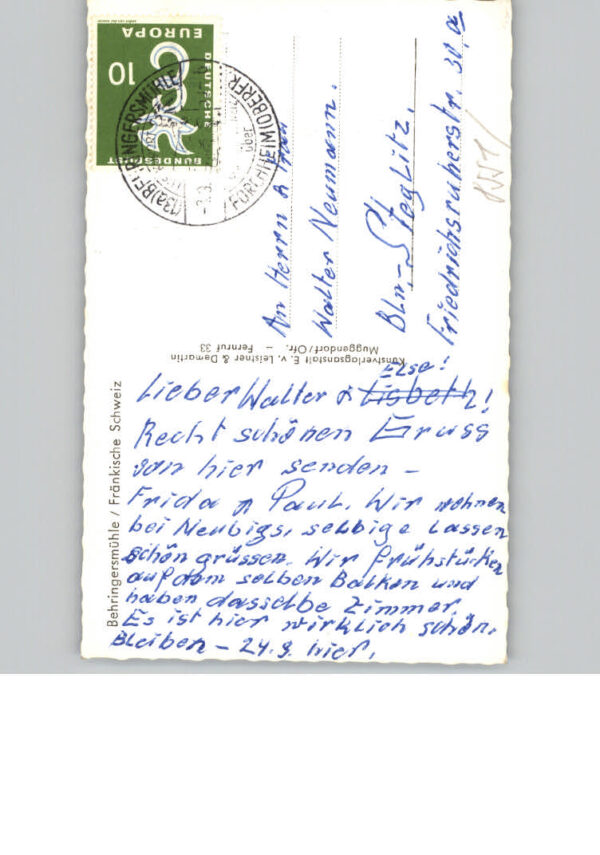 Lieber Walter & Lisbeth! Else!
Recht schönen Gruss
von hier senden –
Frida & Paul. Wir wohnen
bei Neubigs, selbige lassen
schön grüssen. Wir frühstücken
auf dem selben Balkon und
haben dasselbe Zimmer.
Es ist hier wirklich schön.
Bleiben – 24.9. hier.
An Herrn & Frau
Walter Neumann.
Bln.- Steglitz.
Friedrichsruherstr. 30, a
Behringersmühle / Fränkische Schweiz
Kunstverlagsanstalt E. v. Leistner & Demartin
Muggendorf/Ofr. – Fernruf 33
EUROPA
10
DEUTSCHE
BUNDESPOST
(13a) BEHRINGERSMÜHLE
über
FORCHHEIM (OBERFR)